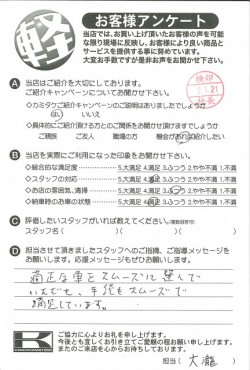 軽
お客様アンケート
当店では、お買い上げ頂いたお客様の声を可能
な限り現場に反映し、お客様により良い商品と
サービスを提供する事に努めています。
大変お手数ですが是非お声をお聞かせ下さい。
A 当店はご紹介を大切にしております。
ご紹介キャンペーンについてお聞かせ下さい。
検印
○カミタケご紹介キャンペーンのご説明はありましたでしょうか
はい いいえ
○具体的にご紹介頂ける方とのご関係をお聞かせ頂けますでしょうか
ご親族 ご友人 職場の方 機会があれば紹介したい
B 当店を実際にご利用になった印象をお聞かせ下さい。
○総合的な満足度 5.大満足 4.満足 3.ふつう 2.やや不満 1.不満
○スタッフの対応 5.大満足 4.満足 3.ふつう 2.やや不満 1.不満
○お店の雰囲気、清掃 5.大満足 4.満足 3.ふつう 2.やや不満 1.不満
○納車時のお車の状態 5.大満足 4.満足 3.ふつう 2.やや不満 1.不満
C 評価したいスタッフがいれば教えてください。(複数回答可)
スタッフ名( )( )( )
D 担当させて頂きましたスタッフへのご指摘、ご指導メッセージを
お願いします。応援メッセージもぜひお願いします。
適正な車をスムーズに選んで
いただき、手続もスムーズで
満足しています。
ご協力に心よりお礼を申し上げます。
今後とも宜しくお引き立てご愛顧の程お願い申し上げます。
またのご来店を心からお待ちしております。
担当( 大瀧 )